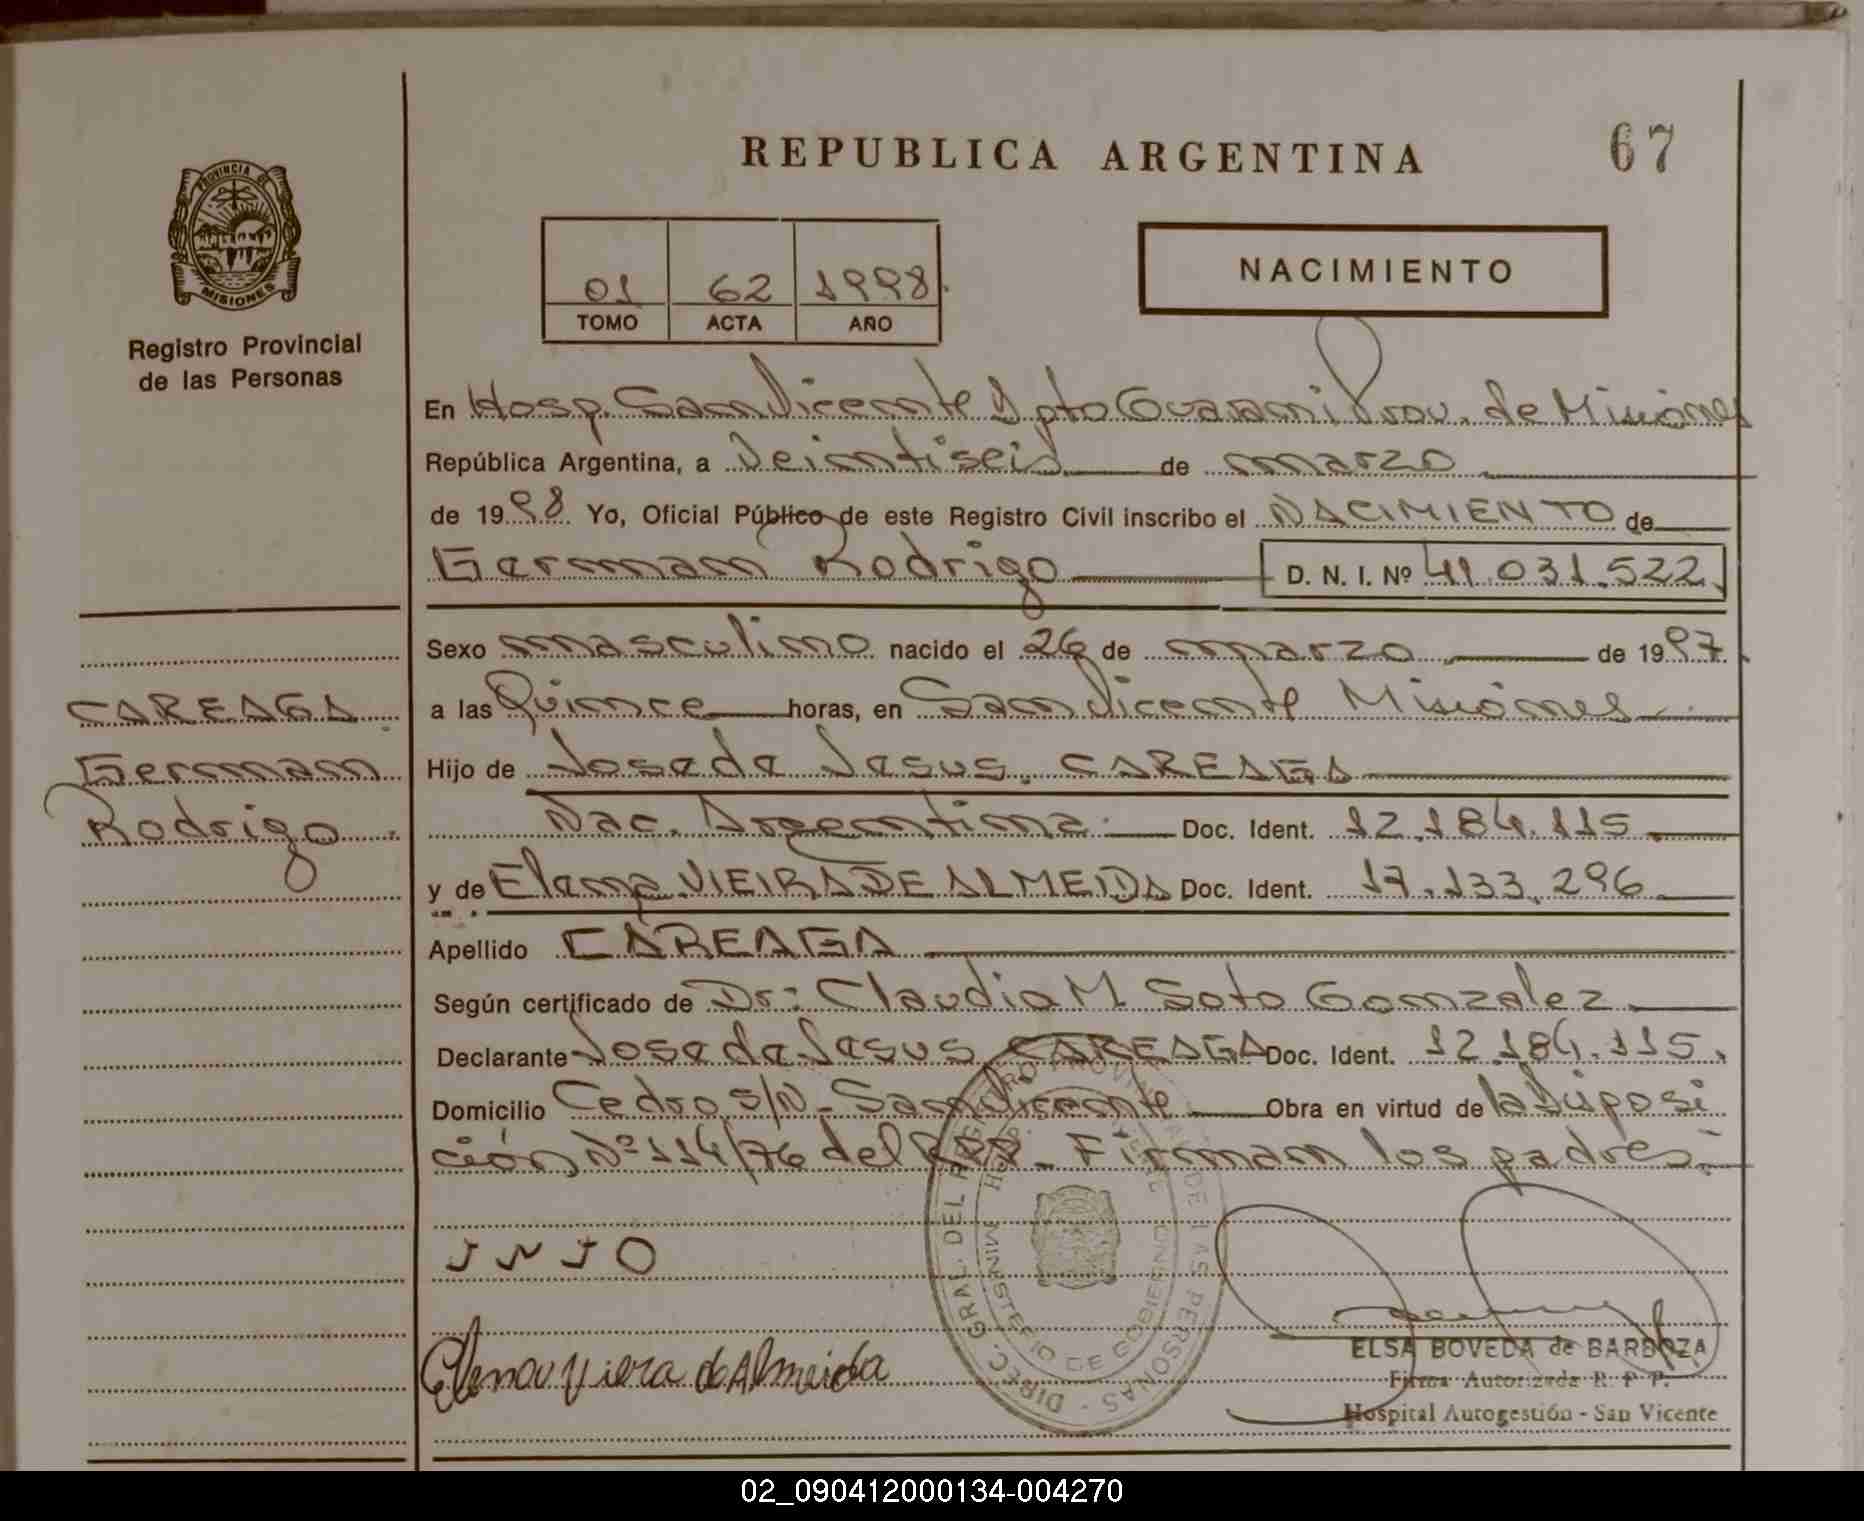 REPUBLICA ARGENTINA
67
PROVINCIA DE
MISIONES
Registro Provincial
de las Personas
01 62 1998
TOMO ACTA AÑO
NACIMIENTO
En Hosp. San Vicente Dpto Guarani Prov. de Misiones
República Argentina, a Veintiseis de marzo
de 1998. Yo, Oficial Público de este Registro Civil inscribo el NACIMIENTO de
German Rodrigo D. N. I. Nº 41.031.522
Sexo masculino nacido el 26 de marzo de 1997
a las Quince horas, en San Vicente Misiones
Hijo de Jose de Jesus. CAREAGA
Nac. Argentina Doc. Ident. 12.184.115
y de Elena VIEIRA DE ALMEIDA Doc. Ident. 17.133.296
Apellido CAREAGA
Según certificado de Dr: Claudio M Soto Gonzalez
Declarante Jose de Jesus CAREAGA Doc. Ident. 12.184.115.
Domicilio Cedro s/N - San Vicente Obra en virtud de la Disposi
ción Nº 114/76 del RPP. Firman los padres.-
CAREAGA
German
Rodrigo
Elena Viera de Almeida
DIREC. GRAL. DEL REGISTRO PROVINCIAL DE LAS PERSONAS
MINISTERIO DE GOBIERNO
ELSA BOVEDA de BARBOZA
Firma Autorizada R. P. P.
Hospital Autogestión - San Vicente
02_090412000134-004270